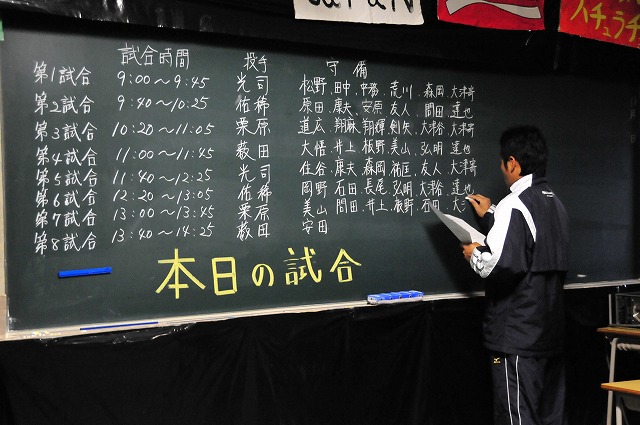 JAPAN
スチュラチ
試合時間 投手 守備
第1試合 9:00～9:45 光司 松野、田中、中務、荒川、森岡、大津寄
第2試合 9:40～10:25 佑稀 原田、康夫、安原、友人、間田、達也
第3試合 10:20～11:05 栗原 道広、翔麻、翔輝、剣矢、大津谷、大津寄
第4試合 11:00～11:45 薮田 大悟、井上、板野、美山、弘明、達也
第5試合 11:40～12:25 光司 住谷、康夫、森岡、祐匡、友人、大津寄
第6試合 12:20～13:05 佑稀 岡野、石田、長尾、弘明、大津谷、達也
第7試合 13:00～13:45 栗原 美山、間田、井上、板野、石田、大
第8試合 13:40～14:25 薮田 安田
本日の試合